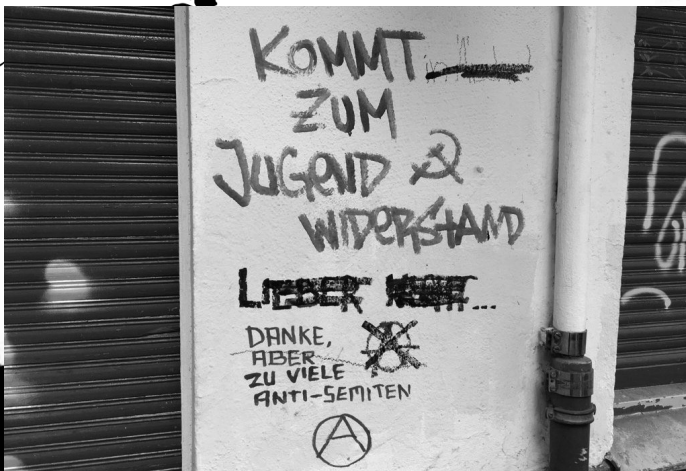 KOMMT
ZUM
JUGEND
WIDERSTAND
LIEBER NICHT...
DANKE,
ABER
ZU VIELE
ANTI-SEMITEN